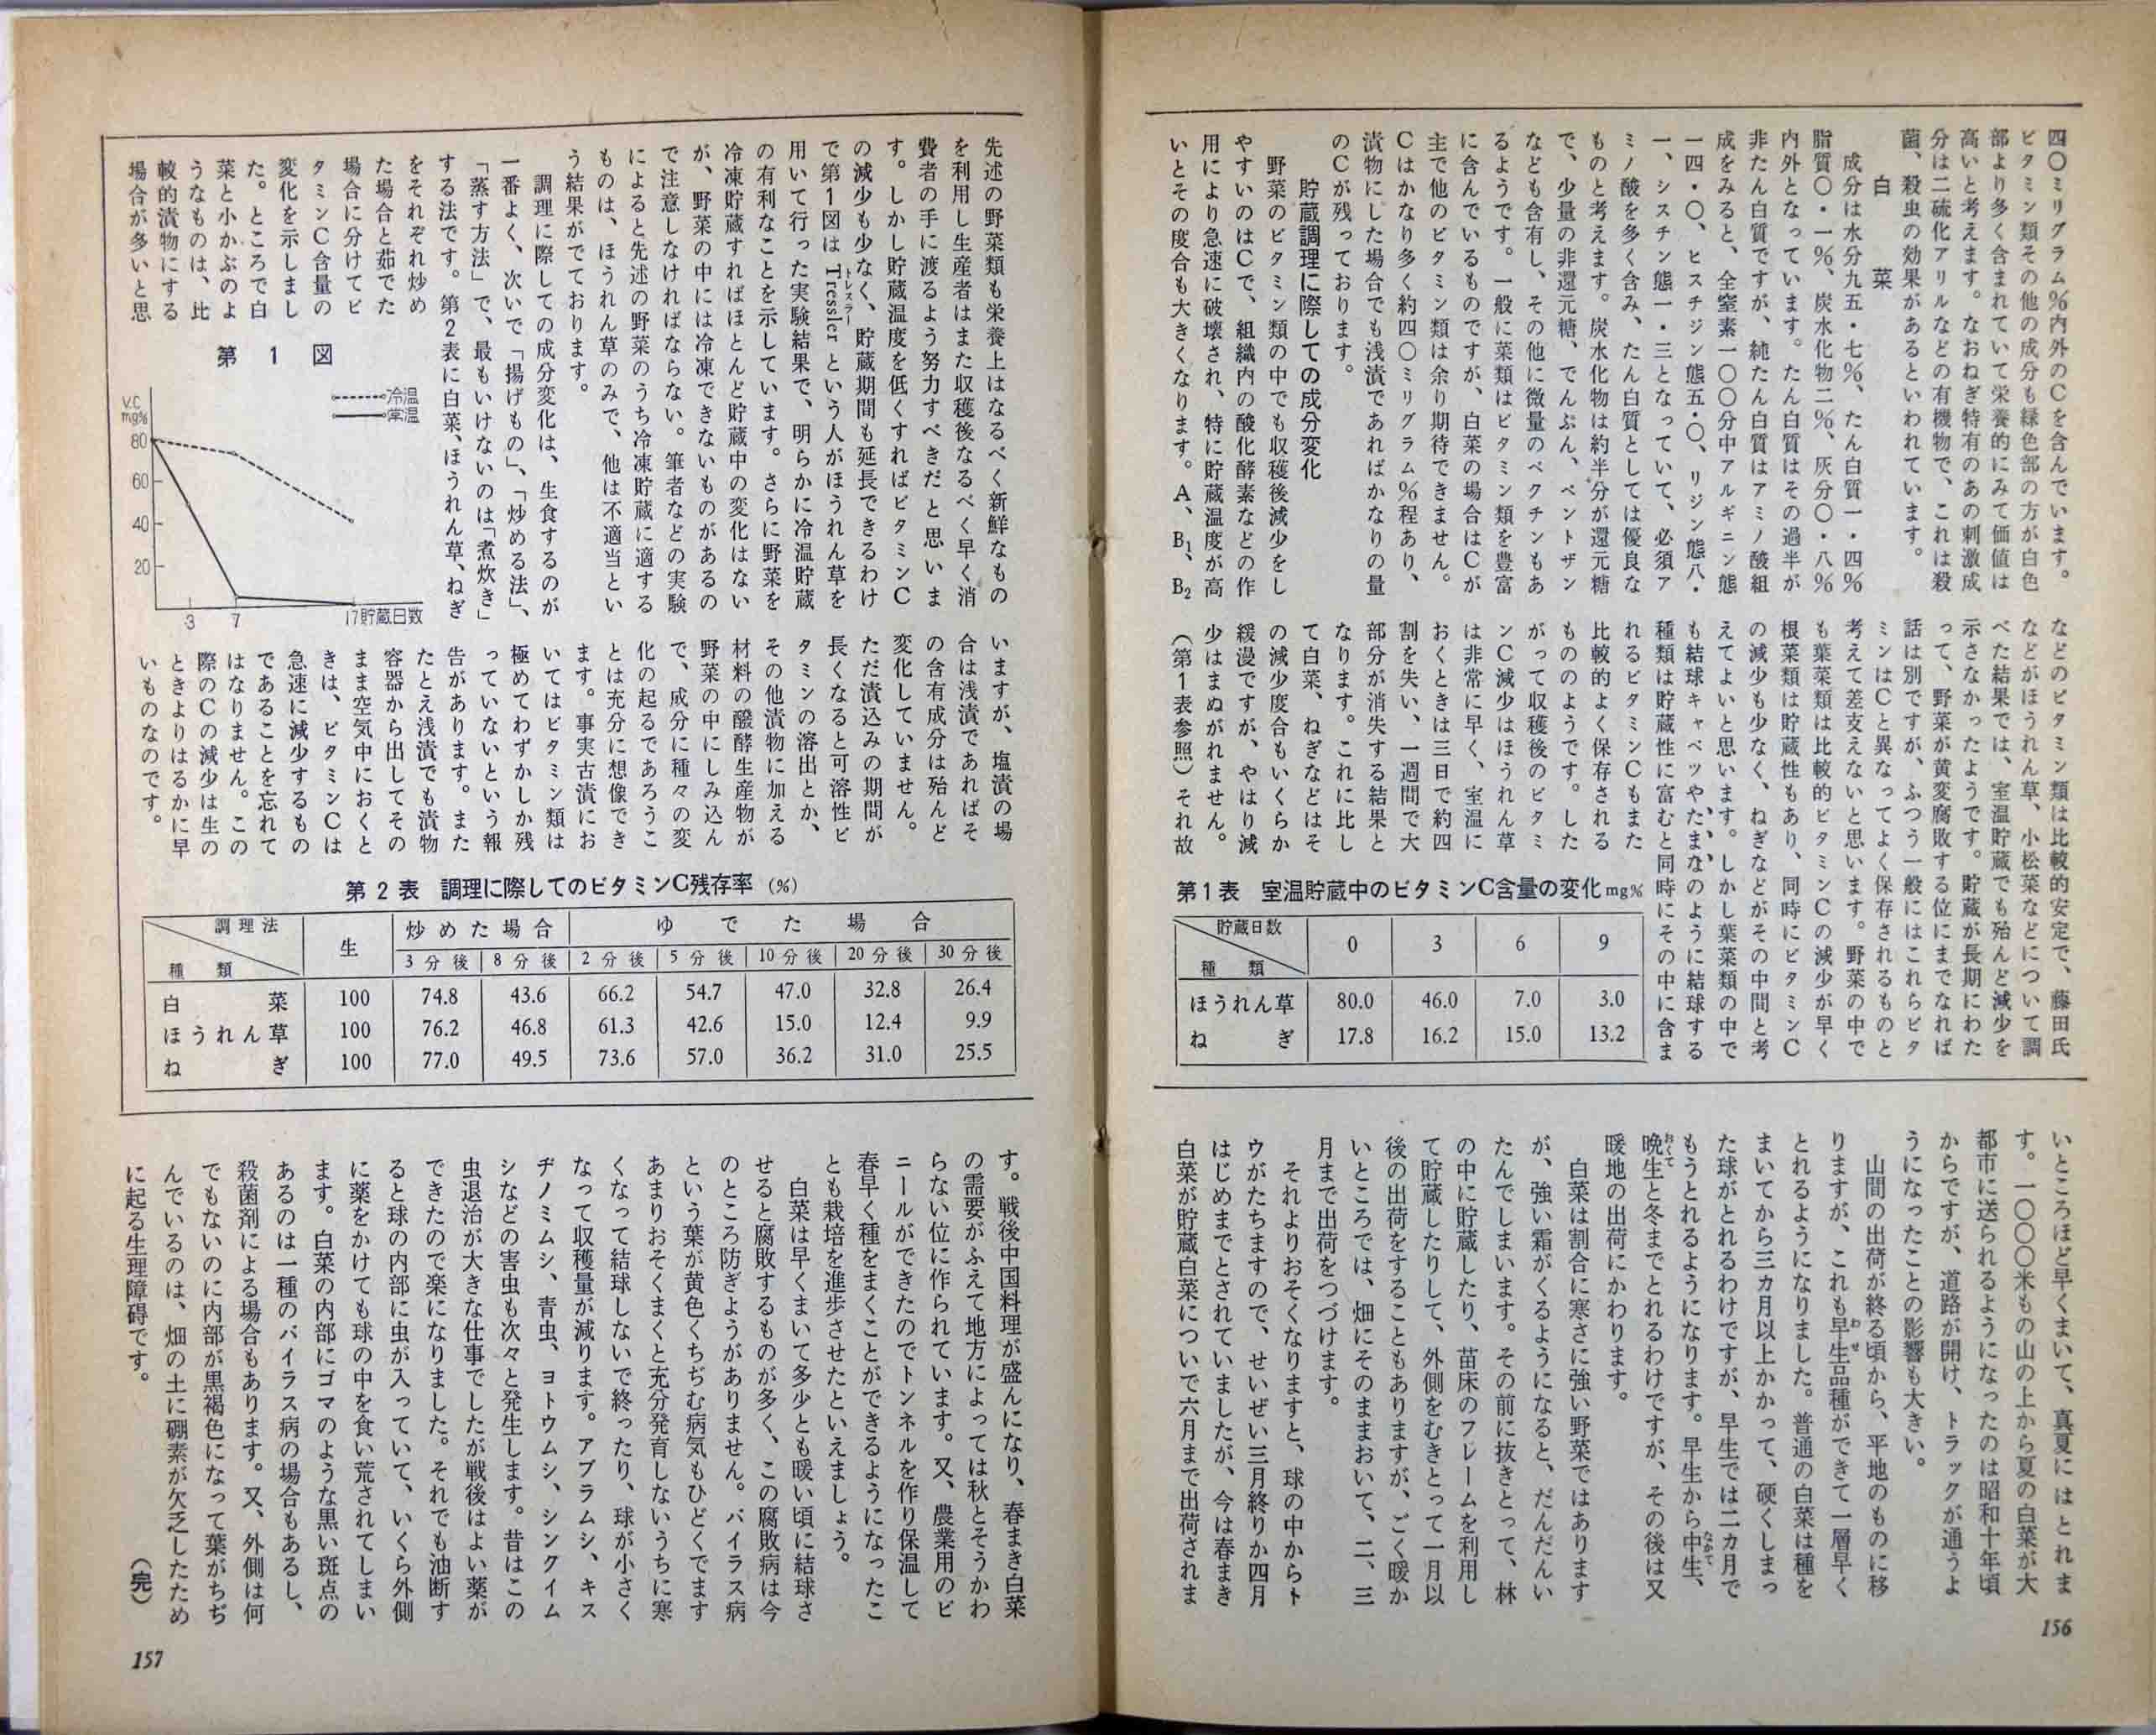 四〇ミリグラム％内外のCを含んでいます。
ビタミン類その他の成分も緑色部の方が白色
部より多く含まれていて栄養的にみて価値は
高いと考えます。なおねぎ特有のあの刺激成
分は二硫化アリルなどの有機物で、これは殺
菌、殺虫の効果があるといわれています。
白菜
成分は水分九五・七％、たん白質一・四％
脂質〇・一％、炭水化物二％、灰分〇・八％
内外となっています。たん白質はその過半が
非たん白質ですが、純たん白質はアミノ酸組
成をみると、全窒素一〇〇分中アルギニン態
一四・〇、ヒスチジン態五・〇、リジン態八・
一、シスチン態一・三となっていて、必須ア
ミノ酸を多く含み、たん白質としては優良な
ものと考えます。炭水化物は約半分が還元糖
で、少量の非還元糖、でんぷん、ペントザン
なども含有し、その他に微量のペクチンもあ
るようです。一般に菜類はビタミン類を豊富
に含んでいるものですが、白菜の場合はCが
主で他のビタミン類は余り期待できません。
Cはかなり多く約四〇ミリグラム％程あり、
漬物にした場合でも浅漬であればかなりの量
のCが残っております。
貯蔵調理に際しての成分変化
野菜のビタミン類の中でも収穫後減少をし
やすいのはCで、組織内の酸化酵素などの作
用により急速に破壊され、特に貯蔵温度が高
いとその度合も大きくなります。A、B₁、B₂
などのビタミン類は比較的安定で、藤田氏
などがほうれん草、小松菜などについて調
べた結果では、室温貯蔵でも殆んど減少を
示さなかったようです。貯蔵が長期にわた
って、野菜が黄変腐敗する位にまでなれば
話は別ですが、ふつう一般にはこれらビタ
ミンはCと異なってよく保存されるものと
考えて差支えないと思います。野菜の中で
も葉菜類は比較的ビタミンCの減少が早く
根菜類は貯蔵性もあり、同時にビタミンC
の減少も少なく、ねぎなどがその中間と考
えてよいと思います。しかし葉菜類の中で
も結球キャベツやたまなのように結球する
種類は貯蔵性に富むと同時にその中に含ま
れるビタミンCもまた
比較的よく保存される
もののようです。した
がって収穫後のビタミ
ンC減少はほうれん草
は非常に早く、室温に
おくときは三日で約四
割を失い、一週間で大
部分が消失する結果と
なります。これに比し
て白菜、ねぎなどはそ
の減少度合もいくらか
緩漫ですが、やはり減
少はまぬがれません。
（第1表参照）それ故
第1表 室温貯蔵中のビタミンC含量の変化mg％
貯蔵日数 種類 0 3 6 9
ほうれん草 80.0 46.0 7.0 3.0
ねぎ 17.8 16.2 15.0 13.2
いところほど早くまいて、真夏にはとれま
す。一〇〇〇米もの山の上から夏の白菜が大
都市に送られるようになったのは昭和十年頃
からですが、道路が開け、トラックが通うよ
うになったことの影響も大きい。
山間の出荷が終る頃から、平地のものに移
りますが、これも早生品種ができて一層早く
とれるようになりました。普通の白菜は種を
まいてから三カ月以上かかって、硬くしまっ
た球がとれるわけですが、早生では二カ月で
もうとれるようになります。早生から中生、
晩生と冬までとれるわけですが、その後は又
暖地の出荷にかわります。
白菜は割合に寒さに強い野菜ではあります
が、強い霜がくるようになると、だんだんい
たんでしまいます。その前に抜きとって、林
の中に貯蔵したり、苗床のフレームを利用し
て貯蔵したりして、外側をむきとって一月以
後の出荷をすることもありますが、ごく暖か
いところでは、畑にそのままおいて、二、三
月まで出荷をつづけます。
それよりおそくなりますと、球の中からト
ウがたちますので、せいぜい三月終りか四月
はじめまでとされていましたが、今は春まき
白菜が貯蔵白菜についで六月まで出荷されま
156
先述の野菜類も栄養上はなるべく新鮮なもの
を利用し生産者はまた収穫後なるべく早く消
費者の手に渡るよう努力すべきだと思いま
す。しかし貯蔵温度を低くすればビタミンC
の減少も少なく、貯蔵期間も延長できるわけ
で第1図はTressler（トレスラー）という人がほうれん草を
用いて行った実験結果で、明らかに冷温貯蔵
の有利なことを示しています。さらに野菜を
冷凍貯蔵すればほとんど貯蔵中の変化はない
が、野菜の中には冷凍できないものがあるの
で注意しなければならない。筆者などの実験
によると先述の野菜のうち冷凍貯蔵に適する
ものは、ほうれん草のみで、他は不適当とい
う結果がでております。
調理に際しての成分変化は、生食するのが
一番よく、次いで「揚げもの」、「炒める法」、
「蒸す方法」で、最もいけないのは「煮炊き」
する法です。第2表に白菜、ほうれん草、ねぎ
をそれぞれ炒め
た場合と茹でた
場合に分けてビ
タミンC含量の
変化を示しまし
た。ところで白
菜と小かぶのよ
うなものは、比
較的漬物にする
場合が多いと思
第1図
冷温
常温
V.C mg%
80
60
40
20
3 7 17 貯蔵日数
いますが、塩漬の場
合は浅漬であればそ
の含有成分は殆んど
変化していません。
ただ漬込みの期間が
長くなると可溶性ビ
タミンの溶出とか、
その他漬物に加える
材料の醗酵生産物が
野菜の中にしみ込ん
で、成分に種々の変
化の起るであろうこ
とは充分に想像でき
ます。事実古漬にお
いてはビタミン類は
極めてわずかしか残
っていないという報
告があります。また
たとえ浅漬でも漬物
容器から出してその
まま空気中におくと
きは、ビタミンCは
急速に減少するもの
であることを忘れて
はなりません。この
際のCの減少は生の
ときよりはるかに早
いものなのです。
第2表 調理に際してのビタミンC残存率（％）
調理法 種類 生 炒めた場合 ゆでた場合
3分後 8分後 2分後 5分後 10分後 20分後 30分後
白菜 100 74.8 43.6 66.2 54.7 47.0 32.8 26.4
ほうれん草 100 76.2 46.8 61.3 42.6 15.0 12.4 9.9
ねぎ 100 77.0 49.5 73.6 57.0 36.2 31.0 25.5
す。戦後中国料理が盛んになり、春まき白菜
の需要がふえて地方によっては秋とそうかわ
らない位に作られています。又、農業用のビ
ニールができたのでトンネルを作り保温して
春早く種をまくことができるようになったこ
とも栽培を進歩させたといえましょう。
白菜は早くまいて多少とも暖い頃に結球さ
せると腐敗するものが多く、この腐敗病は今
のところ防ぎようがありません。バイラス病
という葉が黄色くちぢむ病気もひどくでます
あまりおそくまくと充分発育しないうちに寒
くなって結球しないで終ったり、球が小さく
なって収穫量が減ります。アブラムシ、キス
ヂノミムシ、青虫、ヨトウムシ、シンクイム
シなどの害虫も次々と発生します。昔はこの
虫退治が大きな仕事でしたが戦後はよい薬が
できたので楽になりました。それでも油断す
ると球の内部に虫が入っていて、いくら外側
に薬をかけても球の中を食い荒されてしまい
ます。白菜の内部にゴマのような黒い斑点の
あるのは一種のバイラス病の場合もあるし、
殺菌剤による場合もあります。又、外側は何
でもないのに内部が黒褐色になって葉がちぢ
んでいるのは、畑の土に硼素が欠乏したため
に起る生理障碍です。
（完）
157